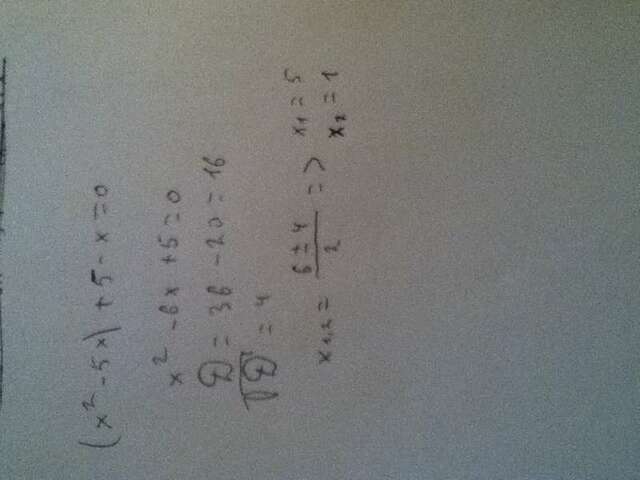 (x² - 5x) + 5 - x = 0
x² - 6x + 5 = 0
D = 36 - 20 = 16
√D = 4
x1,2 = (6 ± 4)/2 => x1 = 5
x2 = 1